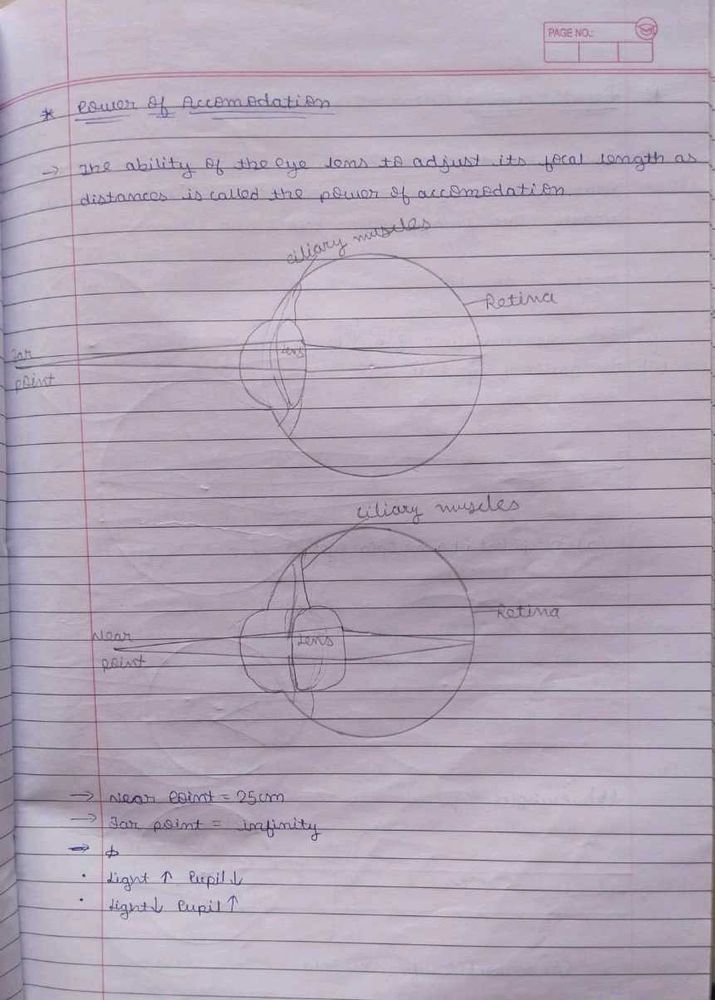 PAGE NO.:
* Power of Accomodation
→ The ability of the eye lens to adjust its focal length as
distances is called the power of accomodation.
ciliary muscles
Retina
Far
point
Lens
ciliary muscles
Retina
Near
point
Lens
→ Near Point = 25cm
→ Far point = infinity
→
• Light ↑ Pupil ↓
• Light ↓ Pupil ↑